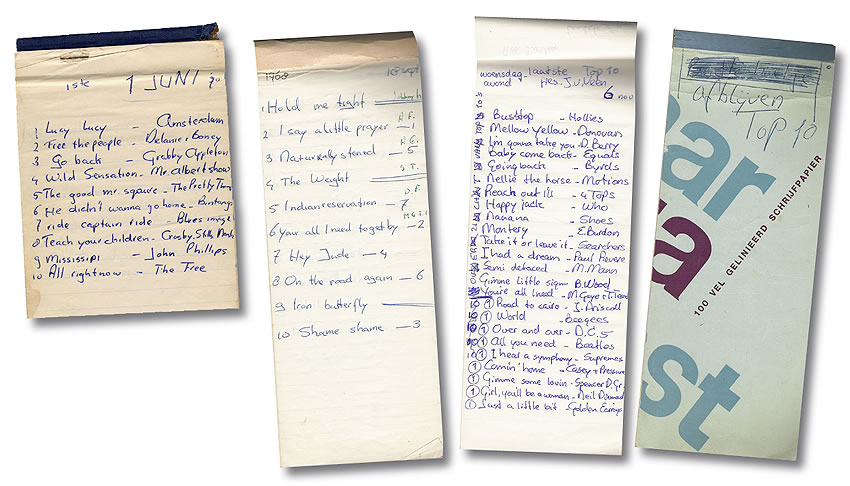 1ste 1 JUNI 70
1 Lucy Lucy - Amsterdam
2 Free the people - Delanie, Boney
3 Go back - Grabby Appleton
4 Wild Sensation - Mr Albert show
5 The good mr. square - The Pretty Things
6 He didn't wanna go home - Bintangs
7 ride captain ride - Blues image
8 Teach your children - Crosby, Stills, Nash
9 Mississipi - John Phillips
10 All right now - The Free
1968 18 sept
1 Hold me tight
2 I say a little prayer - 1
A.F.
3 Naturally stoned - 5
A.G.
4 The Weight
S.T.
5 Indianreservation - 7
D.F.
6 your all I need to get by - 2
7 Hey Jude - 4
8 On the road again - 6
9 Iron butterfly
10 Shame shame - 3
woensdag - laatste Top 10
avond pres. J.v.Veen
6 nov
Busstop - Hollies
Mellow Yellow - Donovan
I'm gonna take you - D. Berry
Baby come back - Equals
Going back - Byrds
Nellie the horse - Motions
Reach out i'll - 4 Tops
Happy jack - Who
Nanana - Shoes
Montery - E. Burdon
Take it or leave it - Searchers
I had a dream - Paul Revere
Semi detaced - M. Mann
Gimme little sign - B. Wood
You're all I need - M. Gaye + T. Terrell
① Road to cairo - J. Driscoll
① World - Beegees
① Over and over - D.C.5
① All you need - Beatles
① I hear a symphony - Supremes
① Comin' home - Casey + Pressure
① Gimme some lovin - Spencer D. Gr.
① Girl, you'll be a woman - Neil Diamond
① Just a little bit - Golden Earrings
afblijven
TOP 10
ar
a
st
100 VEL GELINIEERD SCHRIJFPAPIER